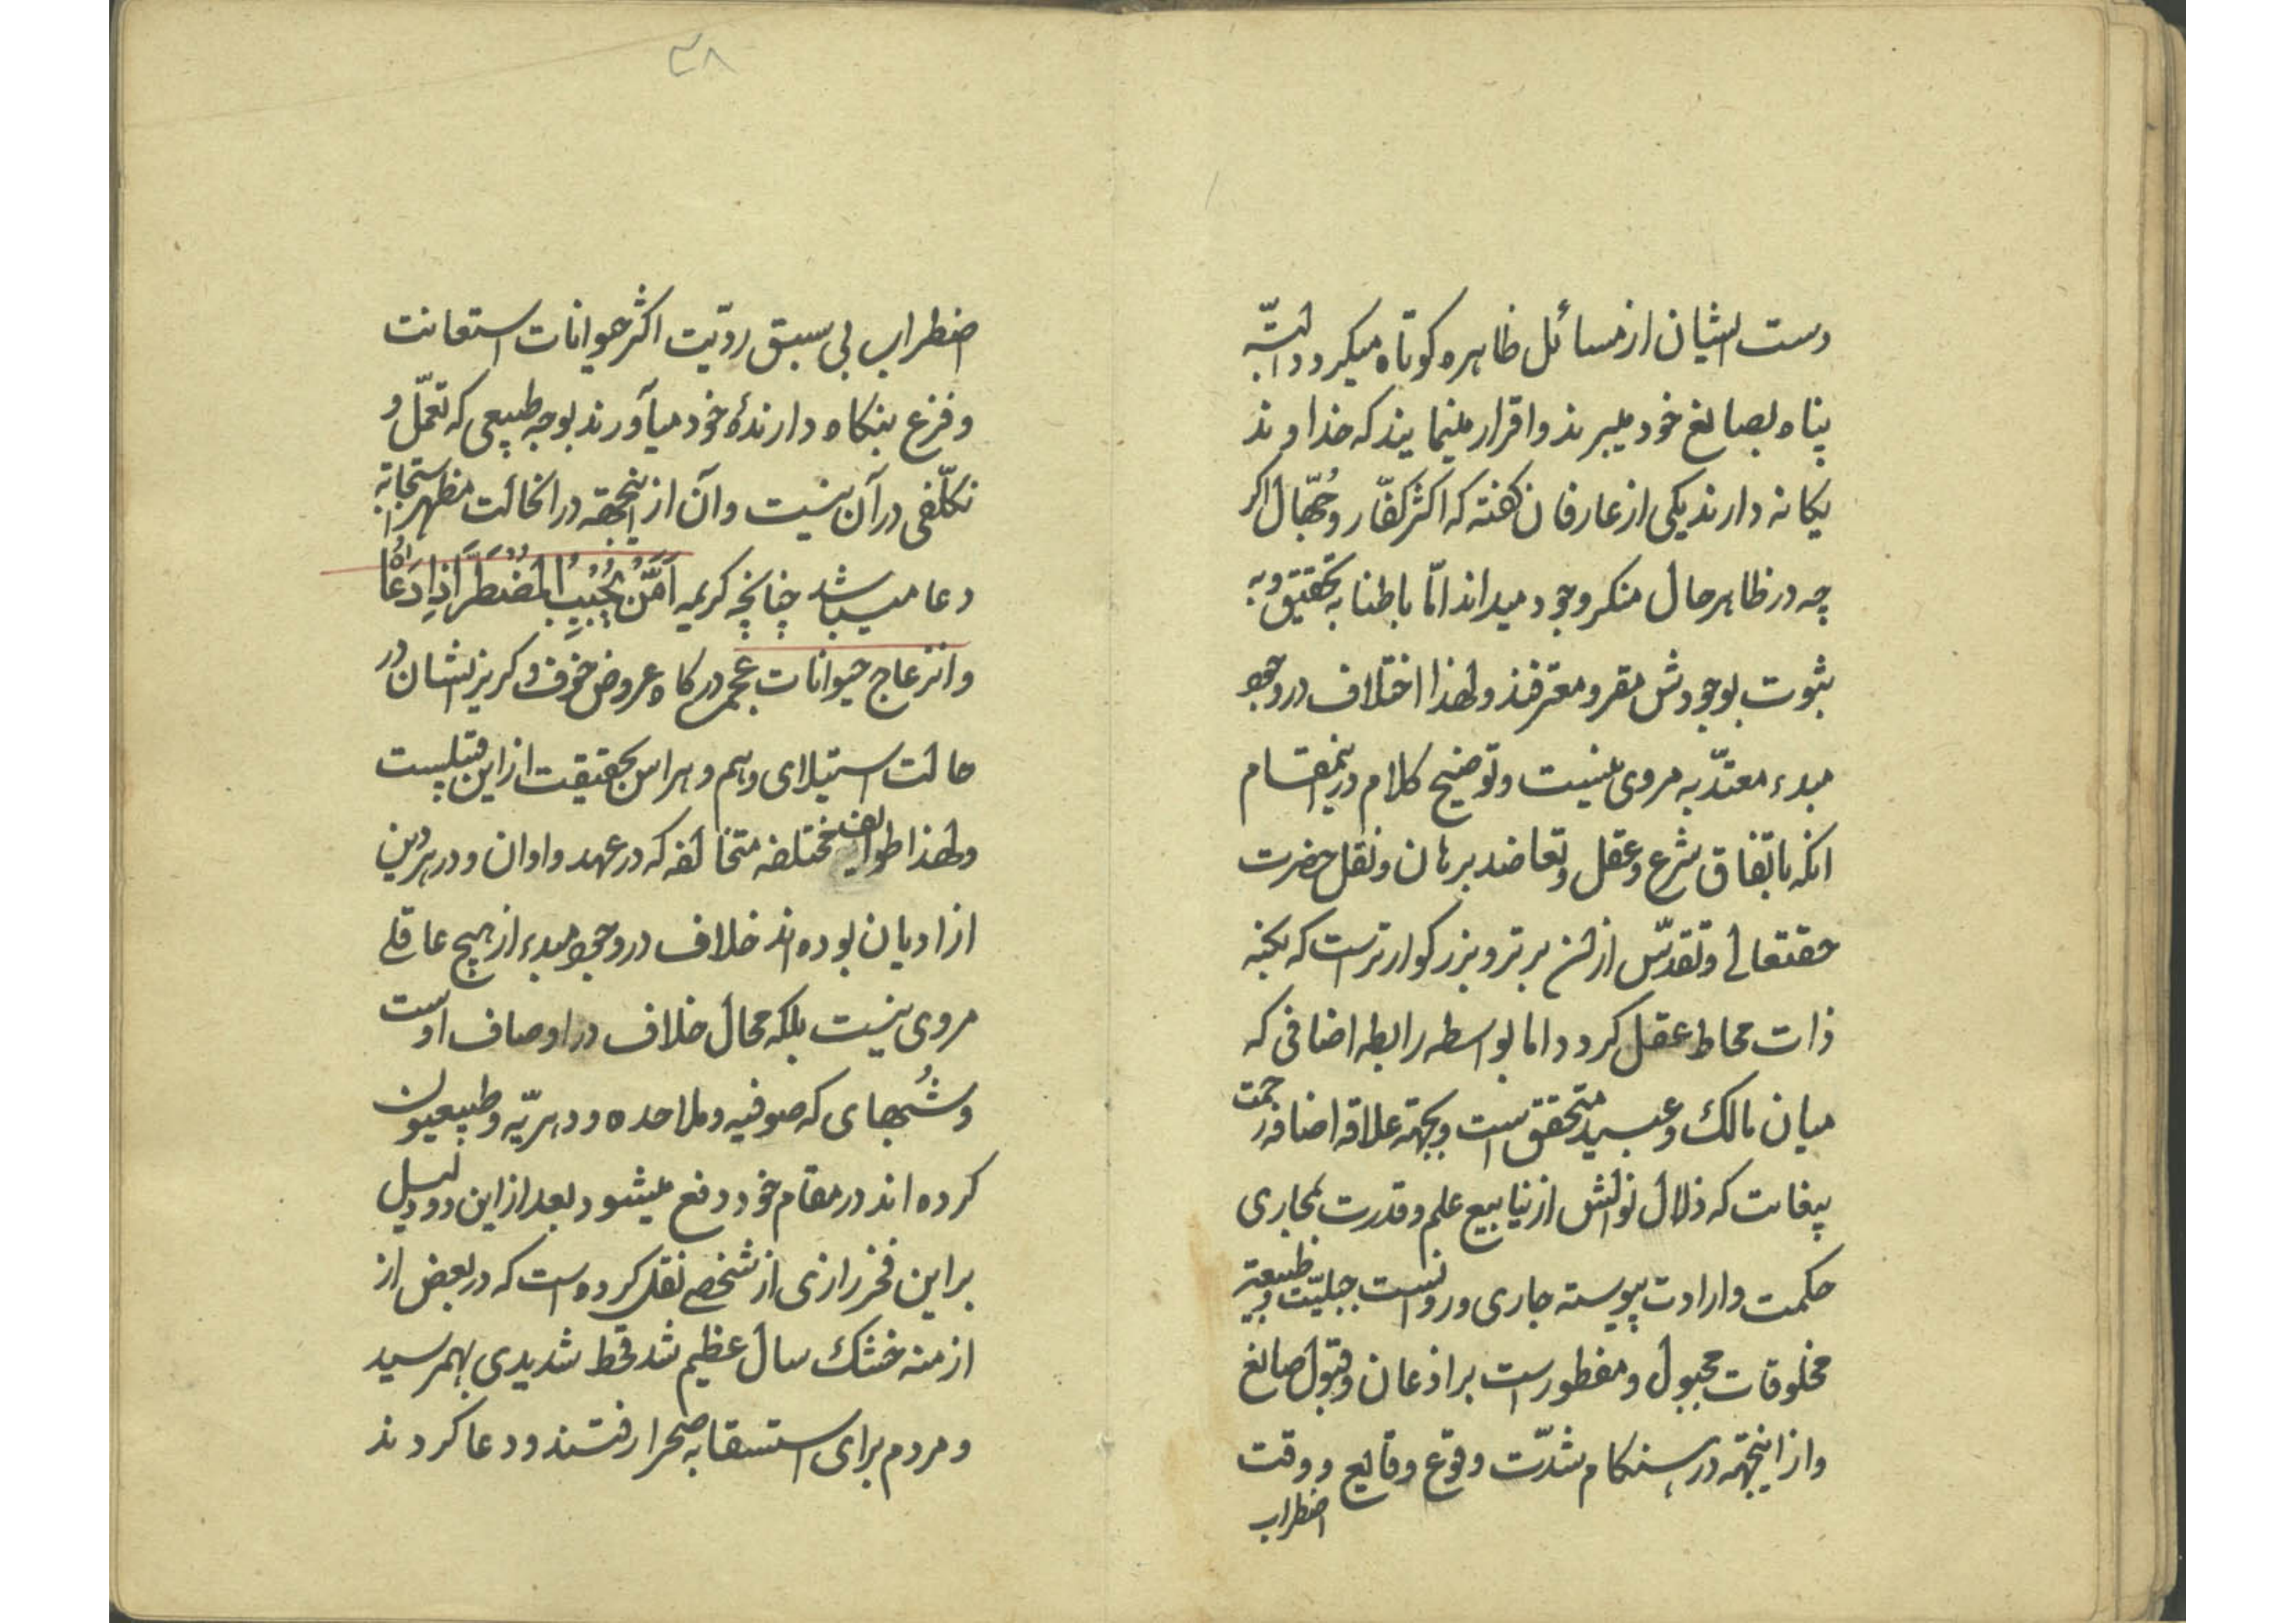 دست ایشان از مسائل ظاهره کوتاه میکردد البتّه
پناه بصانع خود میبرند و اقرار مینمایند که خداوند
یکانه دارند یکی از عارفان کفته که اکثر کفّار و جُهّال اکر
چه در ظاهر حال منکر وجود میداند امّا باطنا به تحقیق و به
ثبوت بوجودش مقر و معترفند و لهذا اختلاف در وجود
مبدء معتدّ به مروی نیست و توضیح کلام در اینمقام
انکه باتفاق شرع و عقل و تعاضد برهان و نقل حضرت
حقتعالی و تقدّس از ان برتر و بزرکوارتر است که بکنه
ذات محاط عقل کردد اما بواسطه رابطه اضافی که
میان مالک و عبید متحقق است و بجهته علاقه اضافه رحمت
بیغایت که ذلال نوالش از ینابیع علم و قدرت بمجاری
حکمت و ارادت پیوسته جاری و روانست جبلیّت و طبیعتِ
مخلوقات مجبول و مفطور است بر اذعان و قبول صانع
و از اینجهته در هنکام شدّت وقوع وقایع و وقت
اضطراب
۳۸
اضطراب بی سبق رویّت اکثر حیوانات استعانت
و فزع بنکاه دارندهٔ خود میآورند بوجه طبیعی که تعمّل و
تکلّفی در آن نیست و آن از اینجهته در انحالت مظهر استجابة
دعا میباشد چنانچه کریمه اَمَّنْ یُجُیبِ الْمُضْطَرَّ اِذا دَعاهُ
و انزعاج حیوانات عجم در کاه عروض خوف و کریز ایشان در
حالت استیلای وهم و هراس بحقیقت از این قبیلست
و لهذا طوایف مختلفه متخالفه که در عهد و اوان و در هر دین
از ادیان بوده اند خلاف در وجود مبدء از هیچ عاقلی
مروی نیست بلکه محال خلاف در اوصاف اوست
و شُبهای که صوفیه و ملاحده و دهریّه و طبیعیون
کرده اند در مقام خود دفع میشود بعد از این دو دلیل
بر این فخر رازی از شخصی نقل کرده است که در بعض از
ازمنه خشک سال عظیم شد قحط شدیدی بهم رسید
و مردم برای استسقا به صحرا رفتند و دعا کردند